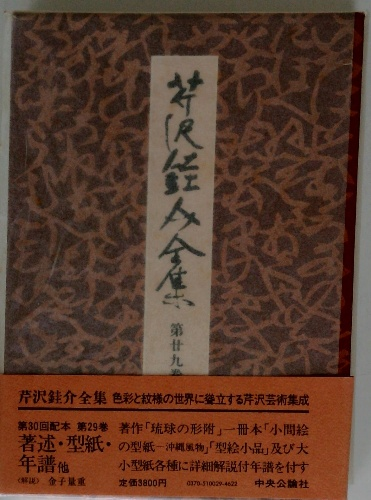 芹沢銈介全集
第廿九巻
芹沢銈介全集 色彩と紋様の世界に聳立する芹沢芸術集成
第30回配本 第29巻
著述・型紙・
年譜他
〈解説〉 金子量重
著作「琉球の形附」一冊本「小間絵
の型紙―沖縄風物」「型絵小品」及び大
小型紙各種に詳細解説付年譜を付す
定価3800円 0370-310029-4622 中央公論社